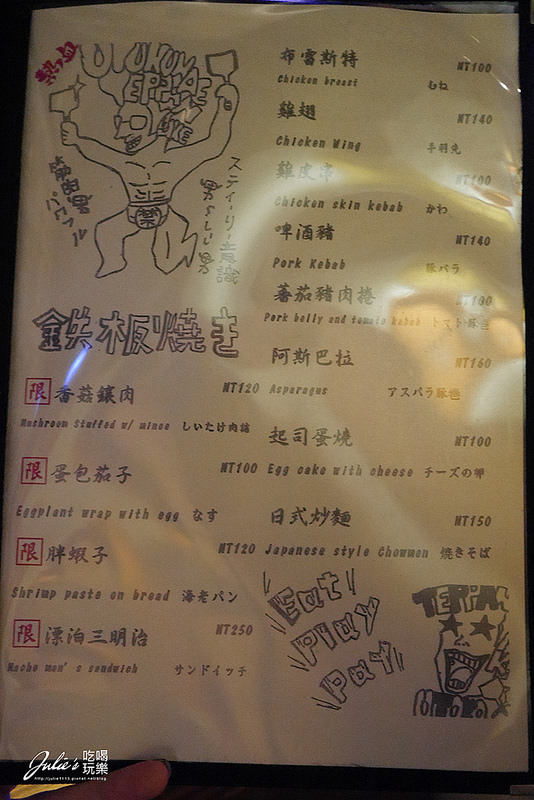 熱血
鉄板焼き
限 香菇鑲肉 NT120
Mushroom Stuffed w/ mince しいたけ肉詰
限 蛋包茄子 NT100
Eggplant wrap with egg なす
限 胖蝦子 NT120
Shrimp paste on bread 海老パン
限 漂泊三明治 NT250
Nacho men's sandwich サンドイッチ
布雷斯特 NT100
Chicken breast むね
雞翅 NT140
Chicken Wing 手羽先
雞皮串 NT100
Chicken skin kebab かわ
啤酒豬 NT140
Pork Kebab 豚バラ
蕃茄豬肉捲 NT100
Pork belly and tomato kebab トマト豚巻
阿斯巴拉 NT160
Asparagus アスパラ豚巻
起司蛋燒 NT100
Egg cake with cheese チーズの卵
日式炒麵 NT150
Japanese style Chowmen 焼きそば
Eat!
Play
Pay!
Julie's 吃喝玩樂